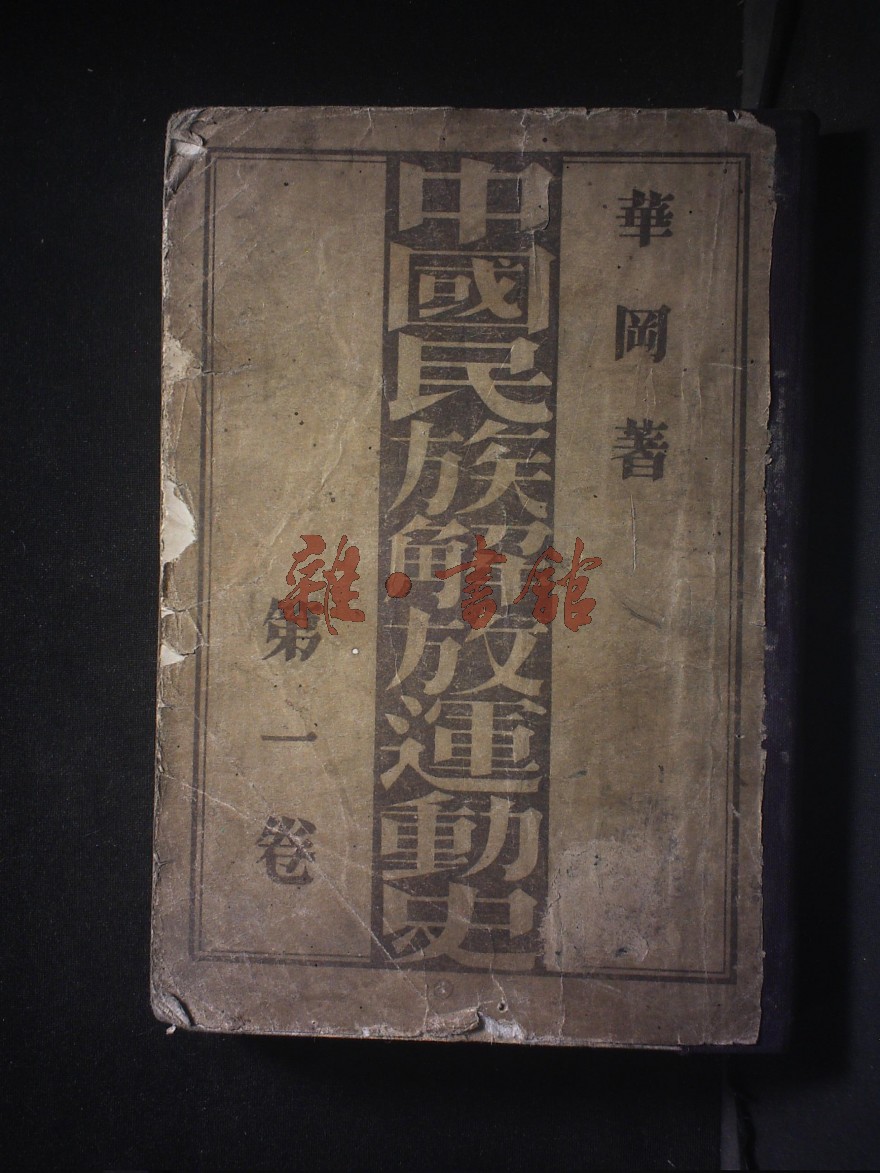 華岡著
中國民族解放運動史
第一卷
雜·書館